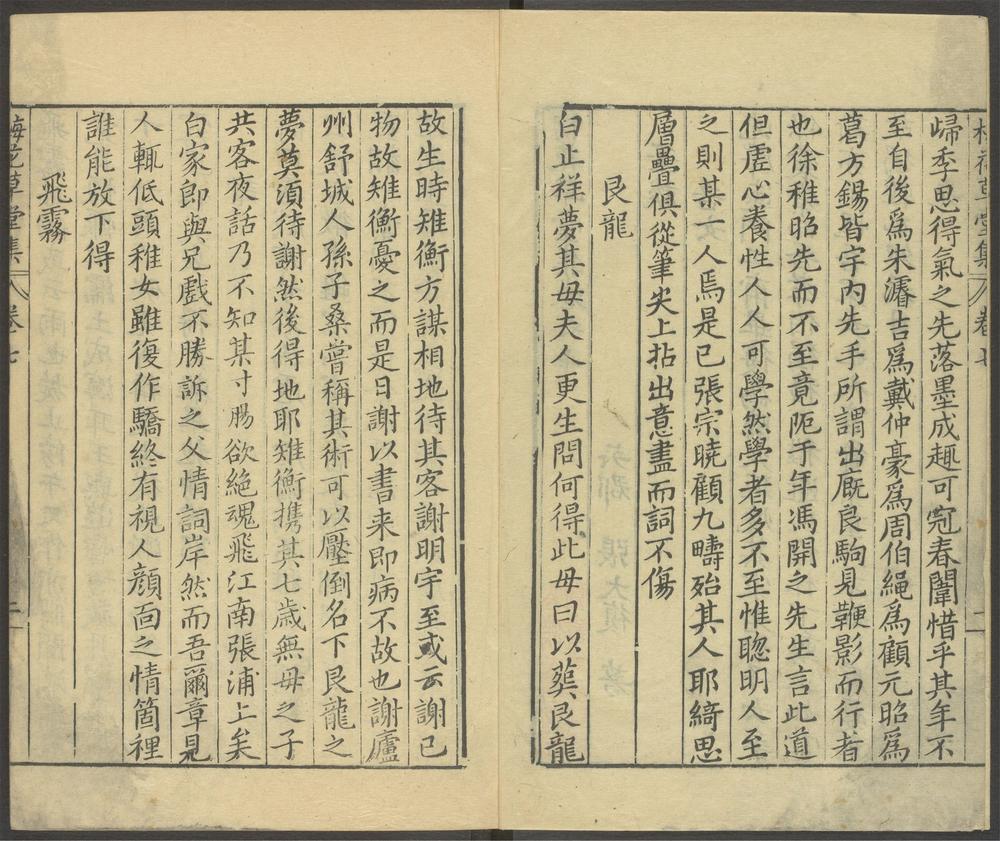 歸季思得氣之先落墨成趣可冠春闈惜乎其年不
至自後爲朱濬吉爲戴仲豪爲周伯繩爲顧元昭爲
葛方錫皆宇內先手所謂出厩良駒見鞭影而行者
也徐稚昭先而不至竟阨千年馮開之先生言此道
但虛心養性人人可學然學者多不至惟聰明人至
之則某一人焉是已張宗曉顧九疇殆其人耶綺思
層疊俱從筆尖上拈出意盡而詞不傷
艮龍
白止祥夢其母夫人更生問何得此母曰以葬艮龍
故生時雉衡方謀相地待其客謝明宇至或云謝已
物故雉衡憂之而是日謝以書来即病不故也謝廬
州舒城人孫子桑嘗稱其術可以壓倒名下艮龍之
夢莫須待謝然後得地耶雉衡携其七歲無母之子
共客夜話乃不知某寸腸欲絕魂飛江南張浦上矣
白家郎與兄戲不勝訴之父情詞岸然而吾爾章見
人輒低頭稚女雖復作驕終有視人顔面之情箇裡
誰能放下得
飛霧
梅花草堂集 卷七